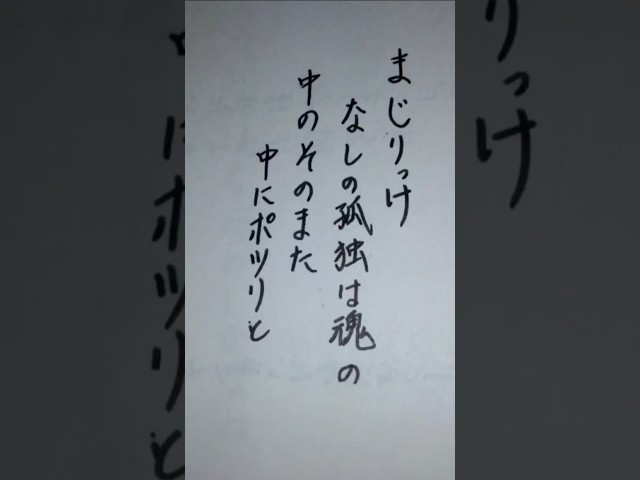 まじりっけ
なしの孤独は魂の
中のそのまた
中にポツリと